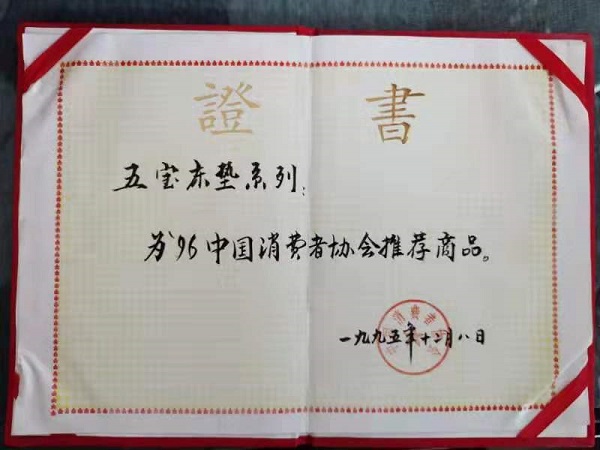 證書
五宝床垫系列：
为'96中国消费者协会推荐商品。
一九九五年十二月八日